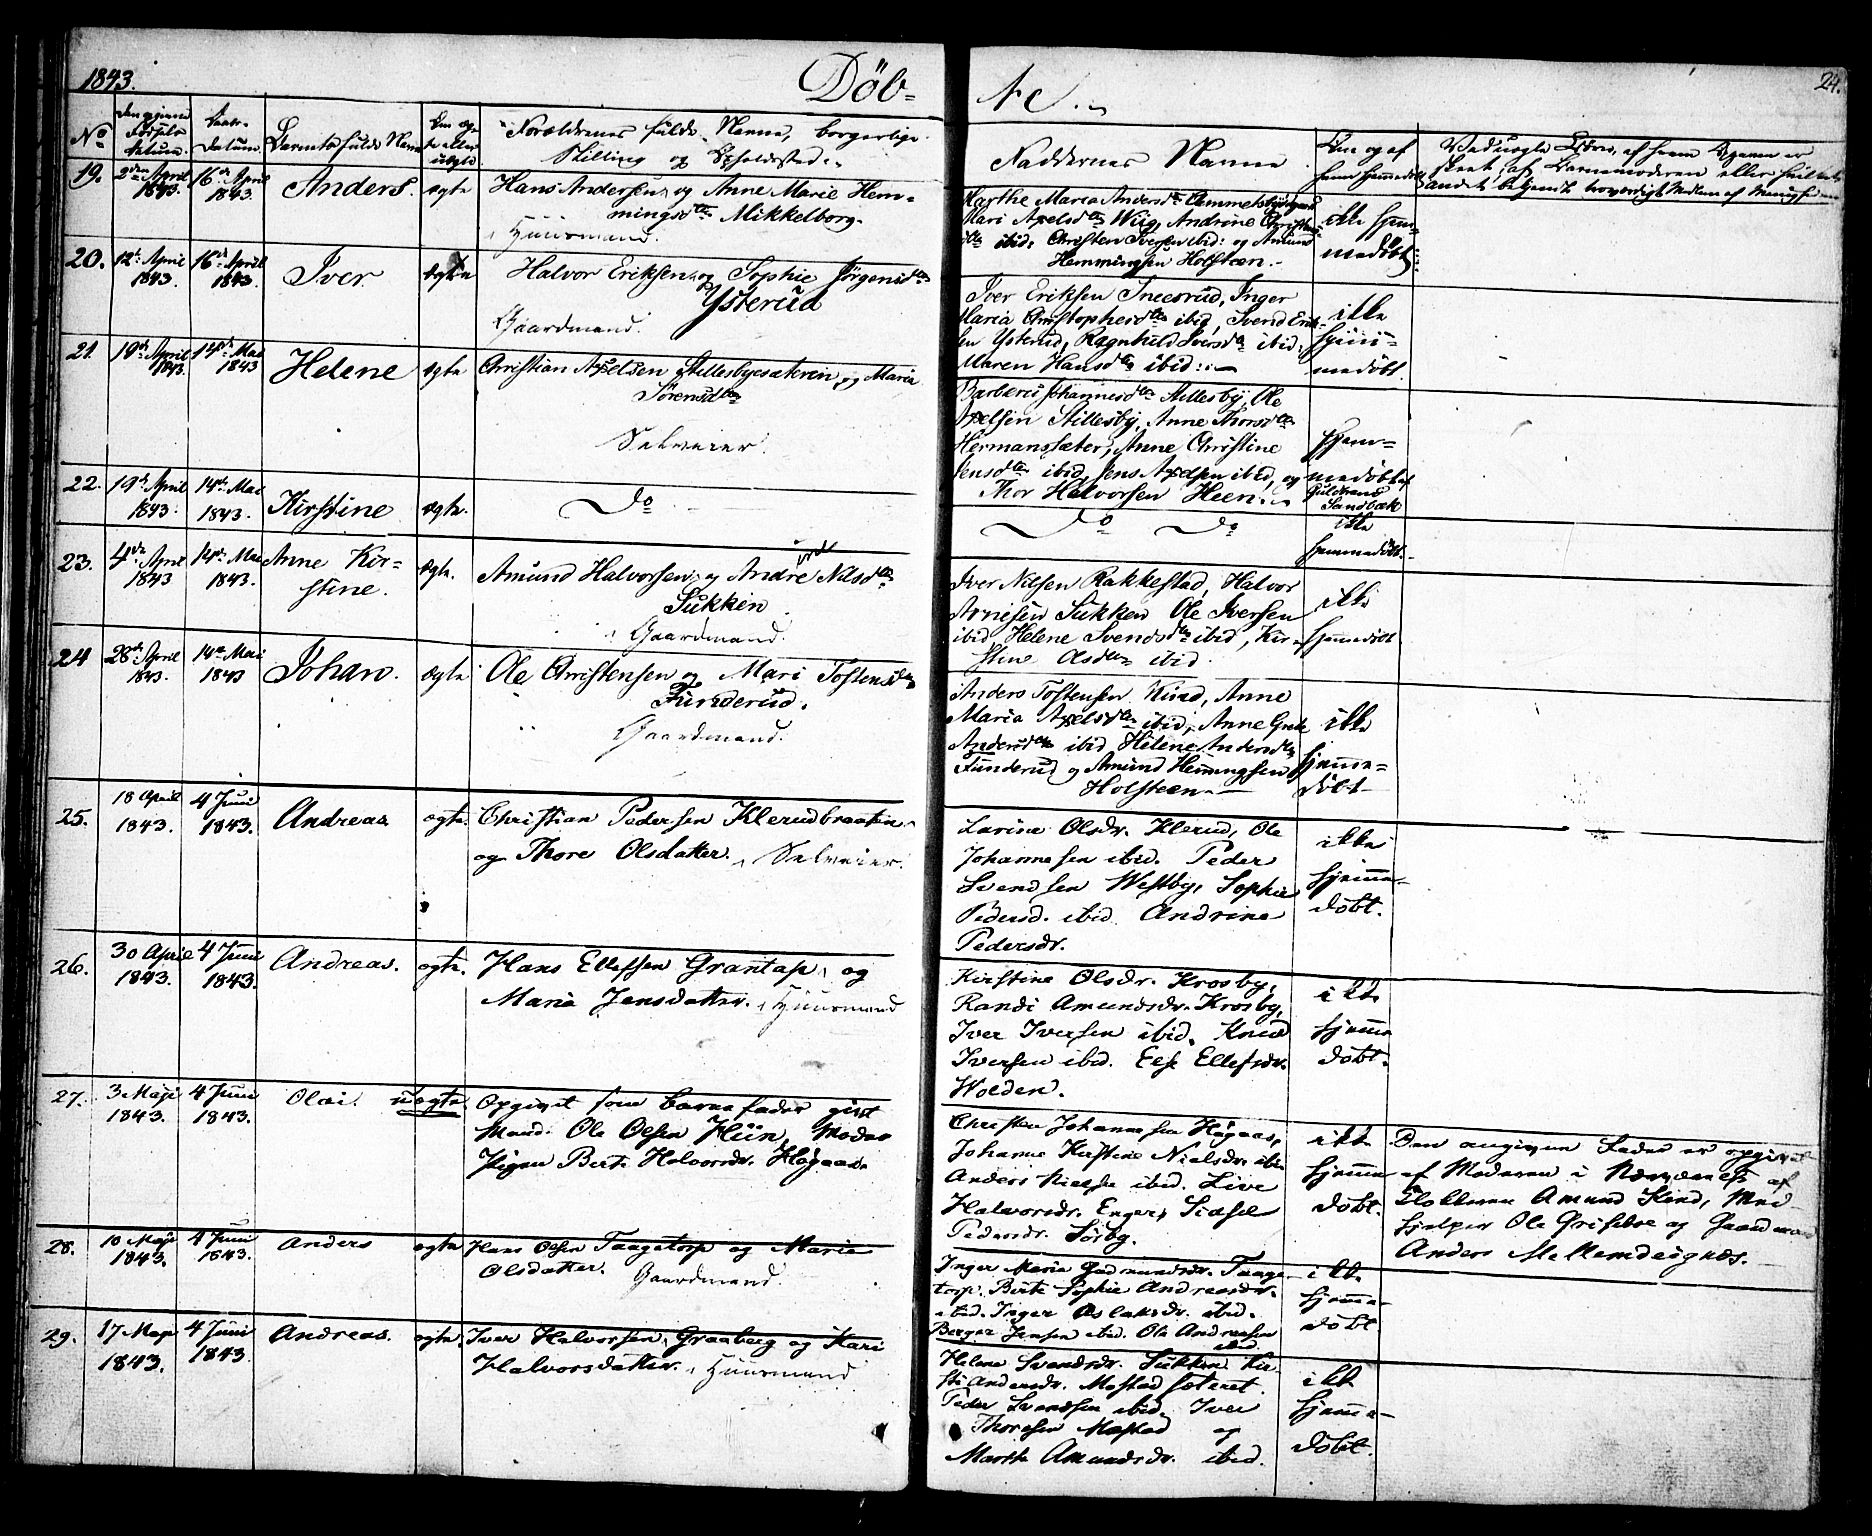 1843.
Döb-
te.
24.
No
Den givne Födsels Datum.
Daabs Datum.
Barnets fulde Navn
Om ægte eller uægte
Forældrenes fulde Navne, borgerlige
Stilling og Opholdssted.
Faddernes Navne
Om og af hvem hjemmedöbt
19.
2den April
1843.
16de April
1843.
Anders.
ægte
Hans Andersen og Anne Marie Hem-
mingsdtr Mikkelborg.
Huusmand.
Marthe Maria Andersdtr
Mari Axelsdtr Wiig, Andrine
ibid: Christen Iversen ibid: og Amund
Hemmingsen Holsteen.
ikke hjem-
medöbt
20.
12te April
1843.
16de April
1843.
Iver
ægte
Halvor Eriksen og Sophie Jörgensdtr
Ysterud
Gaardmand.
Iver Eriksen Sneesrud, Inger
Maria Christophersdtr ibid, Svend Erik-
sen Ysterud, Ragnhild Iversdtr ibid:
Maren Hansdtr ibid:
ikke
hjem-
medöbt.
21.
19de April
1843.
14de Mai
1843
Helene
ægte
Christian Axelsen Stillesbyesæteren, og Maria
Sörensdtr
Selveier.
Barbara Johannesdtr Stillesby, Ole
Axelsen Stillesby, Anne Thorsdtr
Hermansæter, Anne Christine
Jensdtr ibid, Jens Axelsen ibid, og
Thor Halvorsen Heen.
Hjem-
medöbt af
Guldbrand
Sandbæk
22.
19de April
1843.
14de Mai
1843.
Kirstine
ægte.
Do
Do Do
ikke
hjemmedöbt.
23.
4de April
1843
14de Mai
1843.
Anne Kir-
stine.
ægte.
Amund Halvorsen og Andre Nilsdtr
ine
Sukken
Gaardmand.
Iver Nilsen Rakkestad, Halvor
Arnesen Sukken Ole Iversen
ibid, Helene Svendsdtr ibid, Kir-
stine Olsdtr ibid.
ikke
hjemmedöbt
24
28de April
1843.
14de Mai
1843
Johan.
ægte
Ole Christensen og Mari Tostensdtr
Funderud.
Gaardmand.
Anders Tostensen Kind, Anne
Maria Axelsdtr ibid, Anne Grete
Andersdtr ibid Helene Andersdtr
Funderud og Amund Hemmingsen
Holsteen.
ikke
hjemme-
döbt
25.
18 April
1843.
4 Juni
1843.
Andreas
ægte.
Christian Pedersen Klerudbraaten
og Thore Olsdatter. Selveier.
Larine Olsdr. Klerud, Ole
Johannesen ibid. Peder
Svendsen Westby, Sophie
Pedersd. ibid. Andrine
Pedersdr.
ikke
hjemme-
döbt.
26.
30 April
1843.
4 Juni
1843.
Andreas.
ægte.
Hans Ellefsen Grantap, og
Maria Jensdatter. Huusmand
Kirstine Olsdr. Krosby,
Randi Amundsdr. Krosby,
Iver Iversen ibid. Knud
Iversen ibid. Else Ellefsdr.
Wolden.
ikke
hjemme
döbt.
27.
3 Maji
1843.
4 Juni
1843.
Olai.
uægte.
Opgivet som barnefader gift
Mand Ole Olsen Hiin, Moder
Pigen Berte Halvorsdr. Högaas.
Christen Johannesen Högaas,
Johanne Kirstine Nielsdr. ibid
Anders Nielsen ibid. Live
Halvorsdr. Enger,
Pedersdr. Sörby.
ikke
hjemme
döbt.
Den angivne Fader er opgivet
af Moderen i Nærværelse af
Klokkeren Amund Kind, Med-
hjelper Ole Grisebøe og Gaardmand
Anders
28.
10 Maji
1843.
4 Juni
1843.
Anders
ægte
Hans Olsen Taagetorp og Marie
Olsdatter. Gaardmand.
Inger Marie Gudmundsdr. Taage-
torp. Berte Sophie Andreasdr.
ibid. Inger Aslaksdr. ibid.
Berger Jensen ibid. Ole Andreasen
ibid.
ikke
hjemme-
döbt
29.
17 Maji
1843.
4 Juni
1843.
Andreas.
ægte.
Iver Halvorsen Graaberg og Kari
Halvorsdatter. Huusmand
Helene Svendsdr. Sukken Kir-
sti Andersdr. Mostad sæteret.
Peder Svendsen ibid. Iver
Thoresen Mostad og
Marthe Amundsdr. ibid.
ikke
hjemme-
döbt.